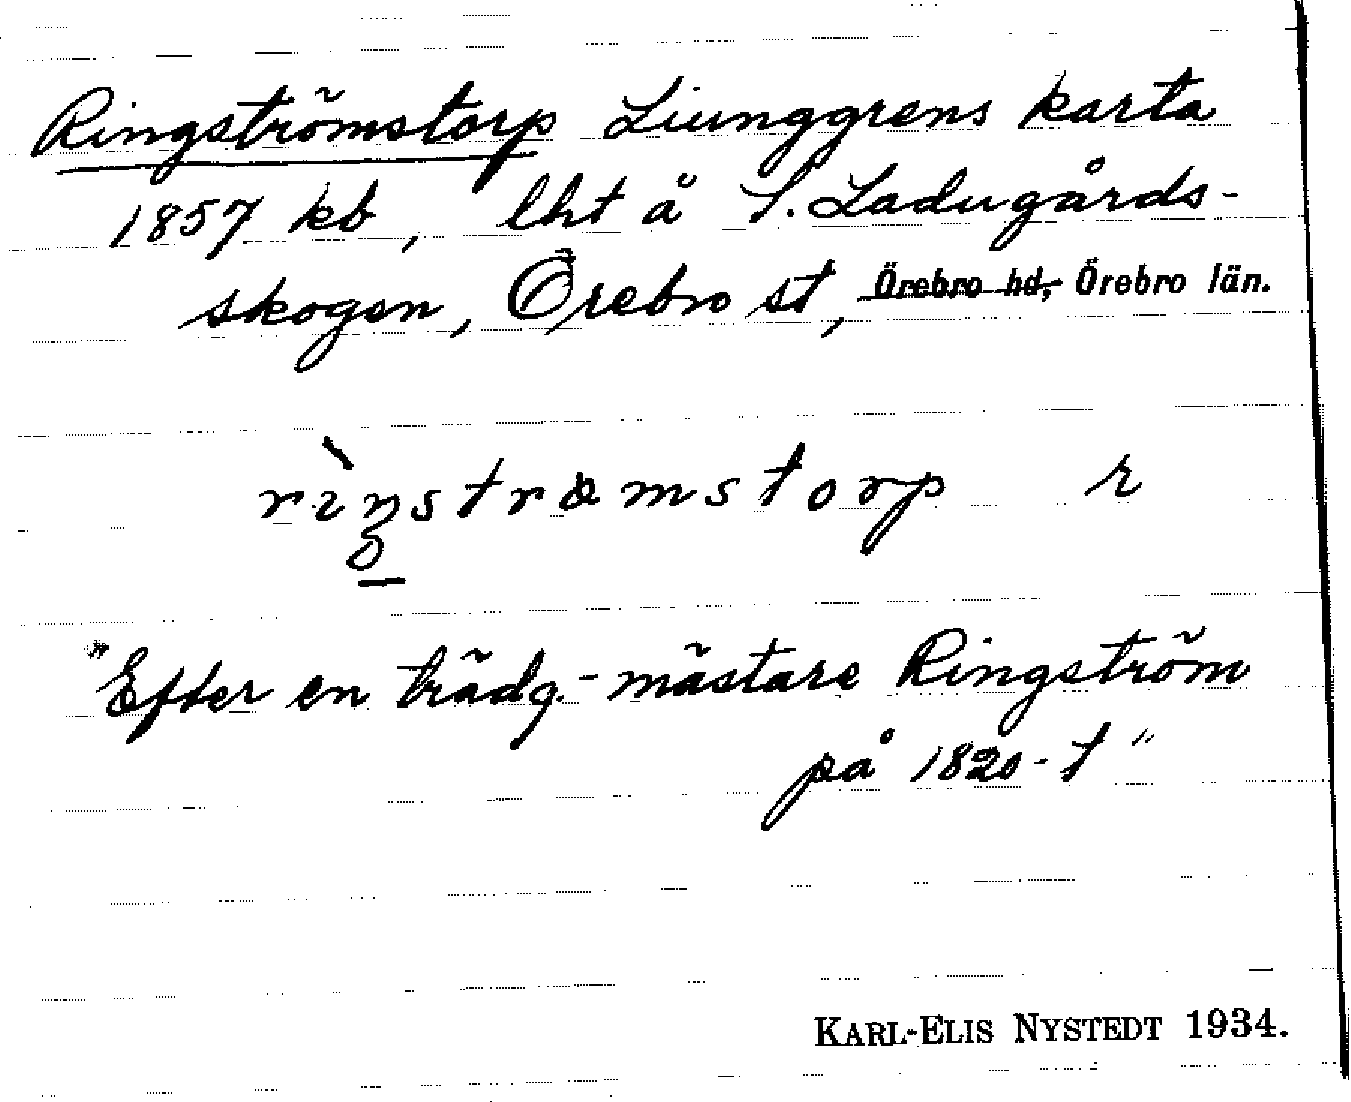 Ringströmstorp Liunggrens karta
1857 kb, lht å S. Ladugårds-
skogen, Örebro st, Örebro hd, Örebro län.
rìŋstrømstorp r
"Efter en trädg.-mästare Ringström
på 1820-t"
KARL-ELIS NYSTEDT 1934.